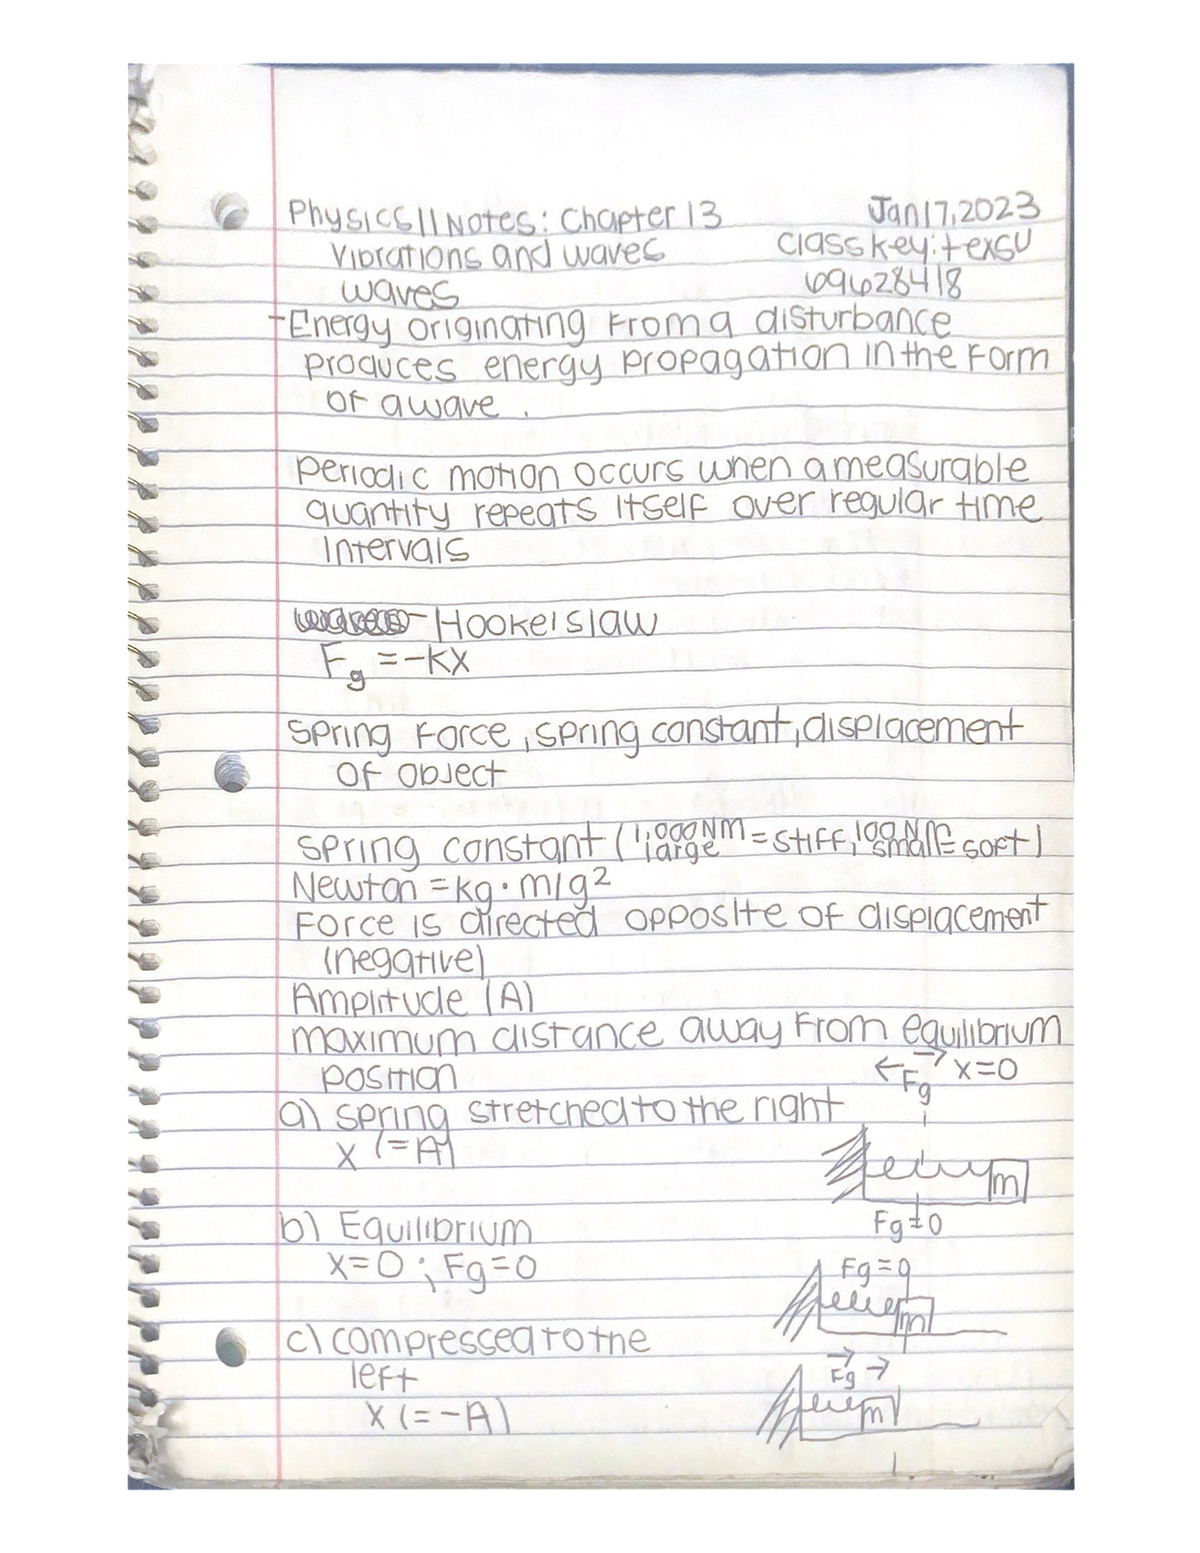 Physics 11 Notes: Chapter 13 Jan 17, 2023
Vibrations and waves class key: texsu
waves 69628418
-Energy originating from a disturbance
produces energy propagation in the form
of a wave.
periodic motion occurs when a measurable
quantity repeats itself over regular time
intervals
Hooke's law
Fg = -kx
Spring force, spring constant, displacement
of object
spring constant (1,000 Nm large = stiff, 100 Nm small = soft)
Newton = kg · m/g²
Force is directed opposite of displacement
(negative)
Amplitude (A)
maximum distance away from equilibrium
position ←Fg → x=0
a) spring stretched to the right
x (=A)
m
b) Equilibrium Fg≠0
x=0; Fg=0 Fg=0
m
c) compressed to the
left Fg →
x (=-A) m